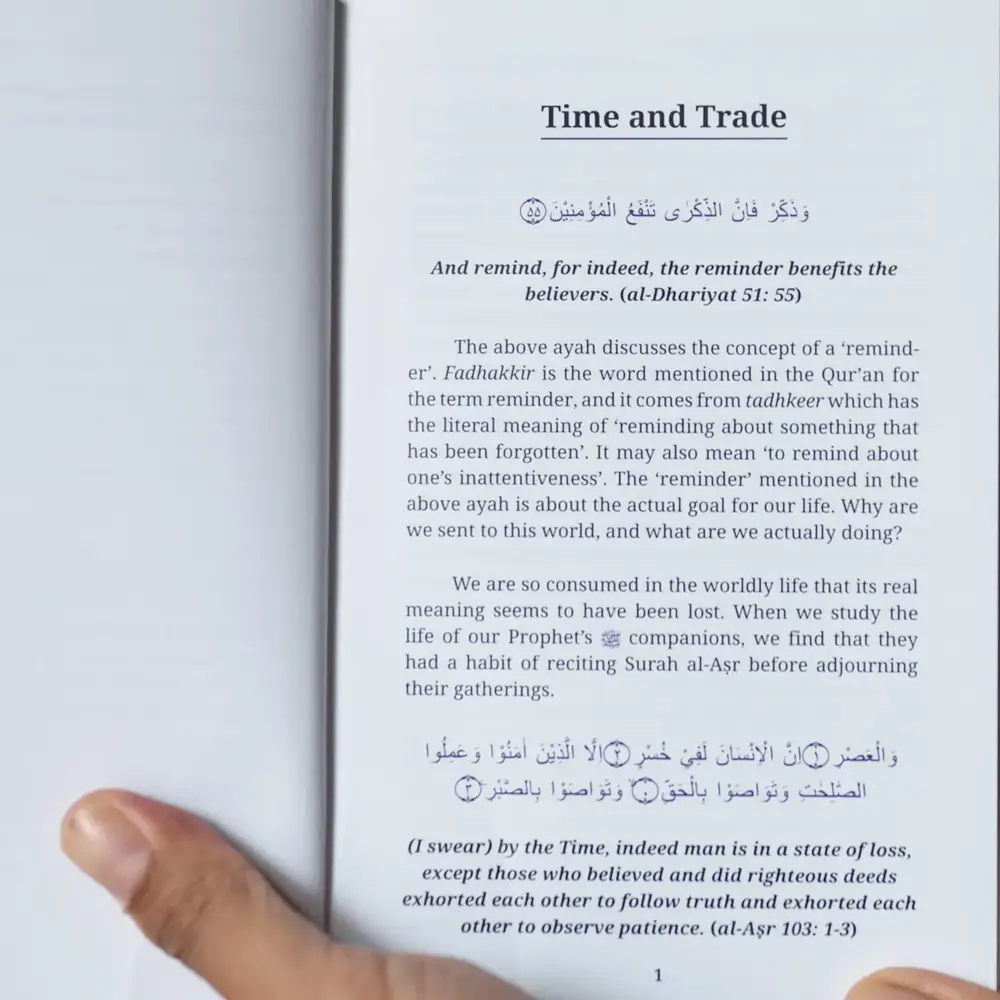 Time and Trade
وَذَكِّرْ فَاِنَّ الذِّكْرٰى تَنْفَعُ الْمُؤْمِنِيْنَ ﴿۵۵﴾
And remind, for indeed, the reminder benefits the
believers. (al-Dhariyat 51: 55)
The above ayah discusses the concept of a ‘remind-
er’. Fadhakkir is the word mentioned in the Qur’an for
the term reminder, and it comes from tadhkeer which has
the literal meaning of ‘reminding about something that
has been forgotten’. It may also mean ‘to remind about
one’s inattentiveness’. The ‘reminder’ mentioned in the
above ayah is about the actual goal for our life. Why are
we sent to this world, and what are we actually doing?
We are so consumed in the worldly life that its real
meaning seems to have been lost. When we study the
life of our Prophet’s ﷺ companions, we find that they
had a habit of reciting Surah al-Aṣr before adjourning
their gatherings.
وَالْعَصْرِ ﴿۱﴾ اِنَّ الْاِنْسَانَ لَفِيْ خُسْرٍ ﴿۲﴾ اِلَّا الَّذِيْنَ اٰمَنُوْا وَعَمِلُوا
الصّٰلِحٰتِ وَتَوَاصَوْا بِالْحَقِّ وَتَوَاصَوْا بِالصَّبْرِ ﴿۳﴾
(I swear) by the Time, indeed man is in a state of loss,
except those who believed and did righteous deeds
exhorted each other to follow truth and exhorted each
other to observe patience. (al-Aṣr 103: 1-3)
1